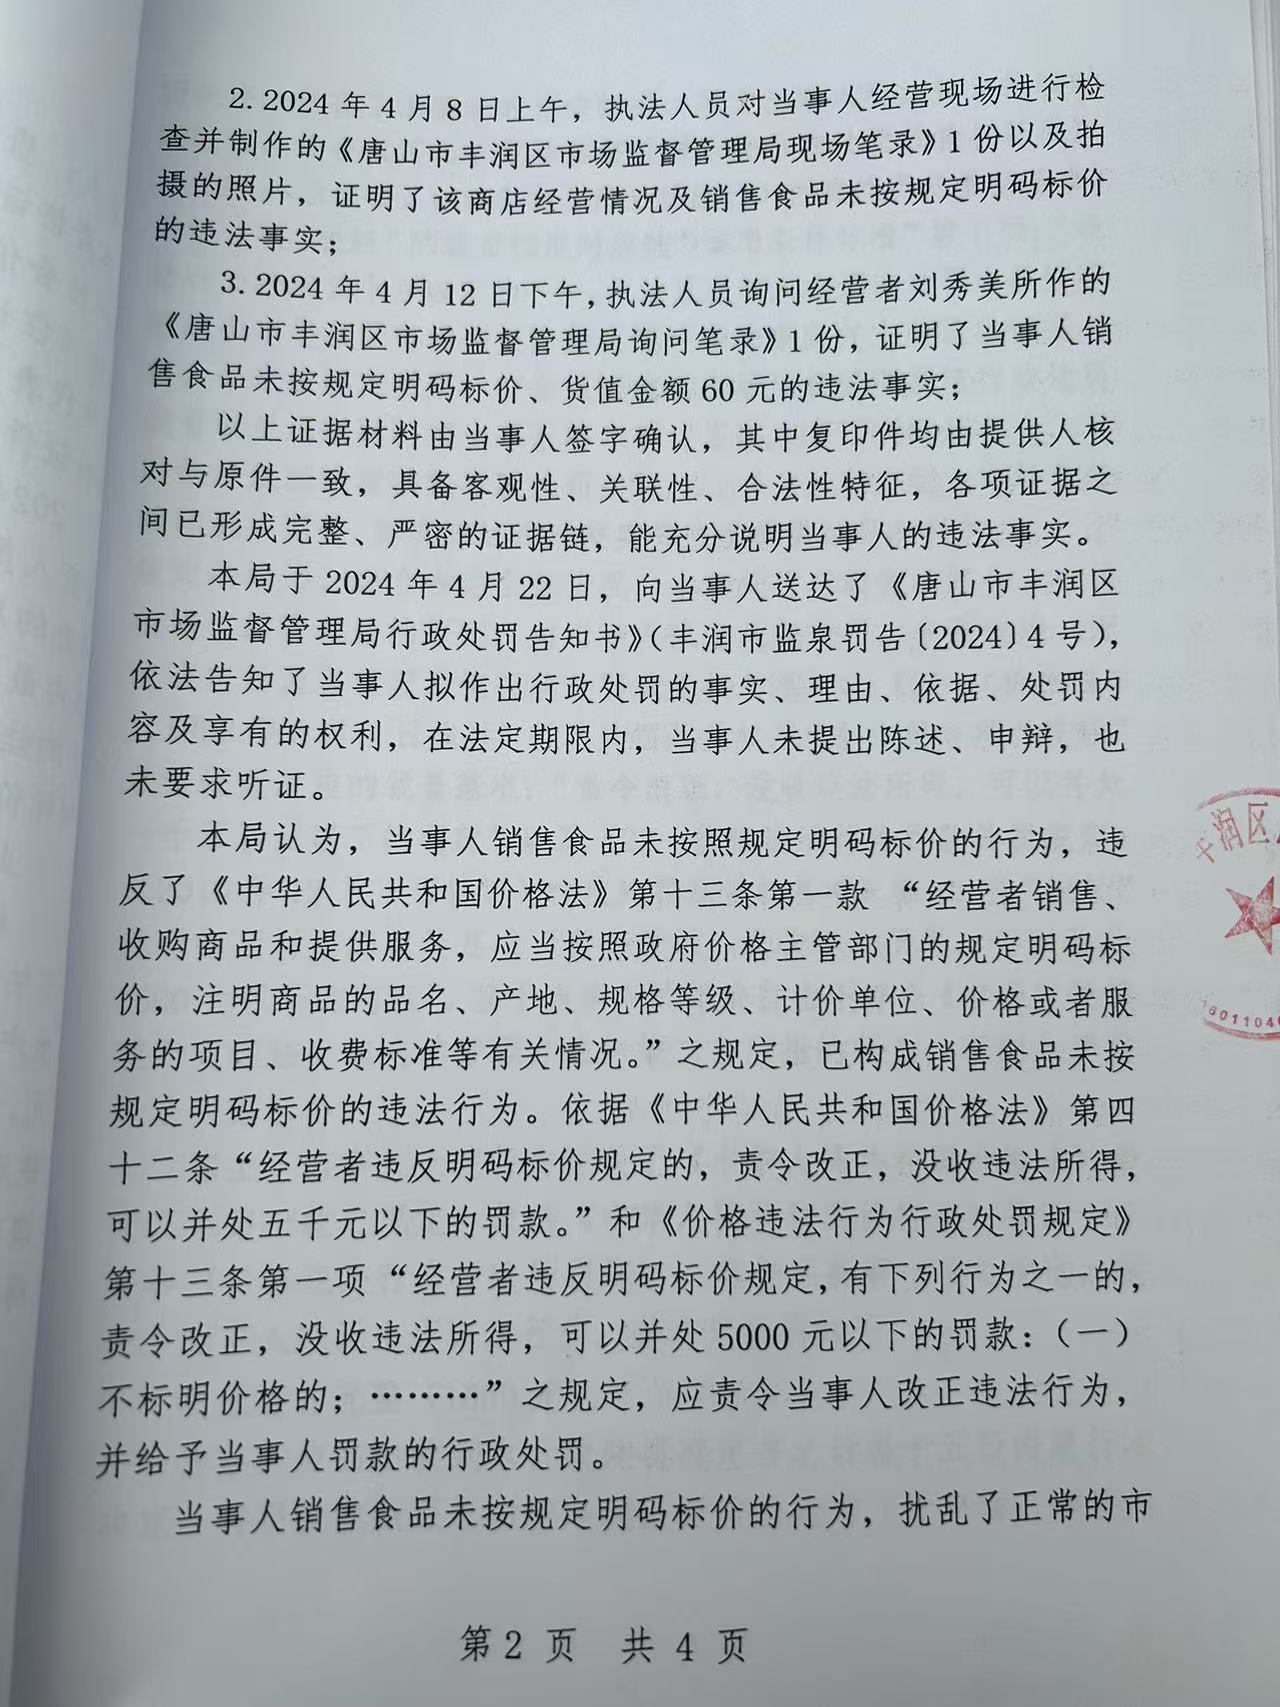 2.2024年4月8日上午，执法人员对当事人经营现场进行检
查并制作的《唐山市丰润区市场监督管理局现场笔录》1份以及拍
摄的照片，证明了该商店经营情况及销售食品未按规定明码标价
的违法事实；
3.2024年4月12日下午，执法人员询问经营者刘秀美所作的
《唐山市丰润区市场监督管理局询问笔录》1份，证明了当事人销
售食品未按规定明码标价、货值金额60元的违法事实；
以上证据材料由当事人签字确认，其中复印件均由提供人核
对与原件一致，具备客观性、关联性、合法性特征，各项证据之
间已形成完整、严密的证据链，能充分说明当事人的违法事实。
本局于2024年4月22日，向当事人送达了《唐山市丰润区
市场监督管理局行政处罚告知书》（丰润市监泉罚告〔2024〕4号），
依法告知了当事人拟作出行政处罚的事实、理由、依据、处罚内
容及享有的权利，在法定期限内，当事人未提出陈述、申辩，也
未要求听证。
本局认为，当事人销售食品未按照规定明码标价的行为，违
反了《中华人民共和国价格法》第十三条第一款“经营者销售、
收购商品和提供服务，应当按照政府价格主管部门的规定明码标
价，注明商品的品名、产地、规格等级、计价单位、价格或者服
务的项目、收费标准等有关情况。”之规定，已构成销售食品未按
规定明码标价的违法行为。依据《中华人民共和国价格法》第四
十二条“经营者违反明码标价规定的，责令改正，没收违法所得，
可以并处五千元以下的罚款。”和《价格违法行为行政处罚规定》
第十三条第一项“经营者违反明码标价规定，有下列行为之一的，
责令改正，没收违法所得，可以并处5000元以下的罚款：（一）
不标明价格的；………”之规定，应责令当事人改正违法行为，
并给予当事人罚款的行政处罚。
当事人销售食品未按规定明码标价的行为，扰乱了正常的市
第2页 共4页
润区